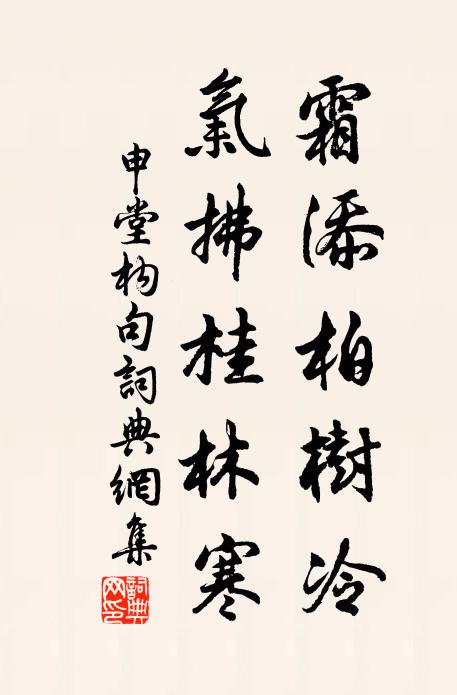 霜添柏樹冷
氣拂桂林寒
申堂构句詞典網集
詞典网印